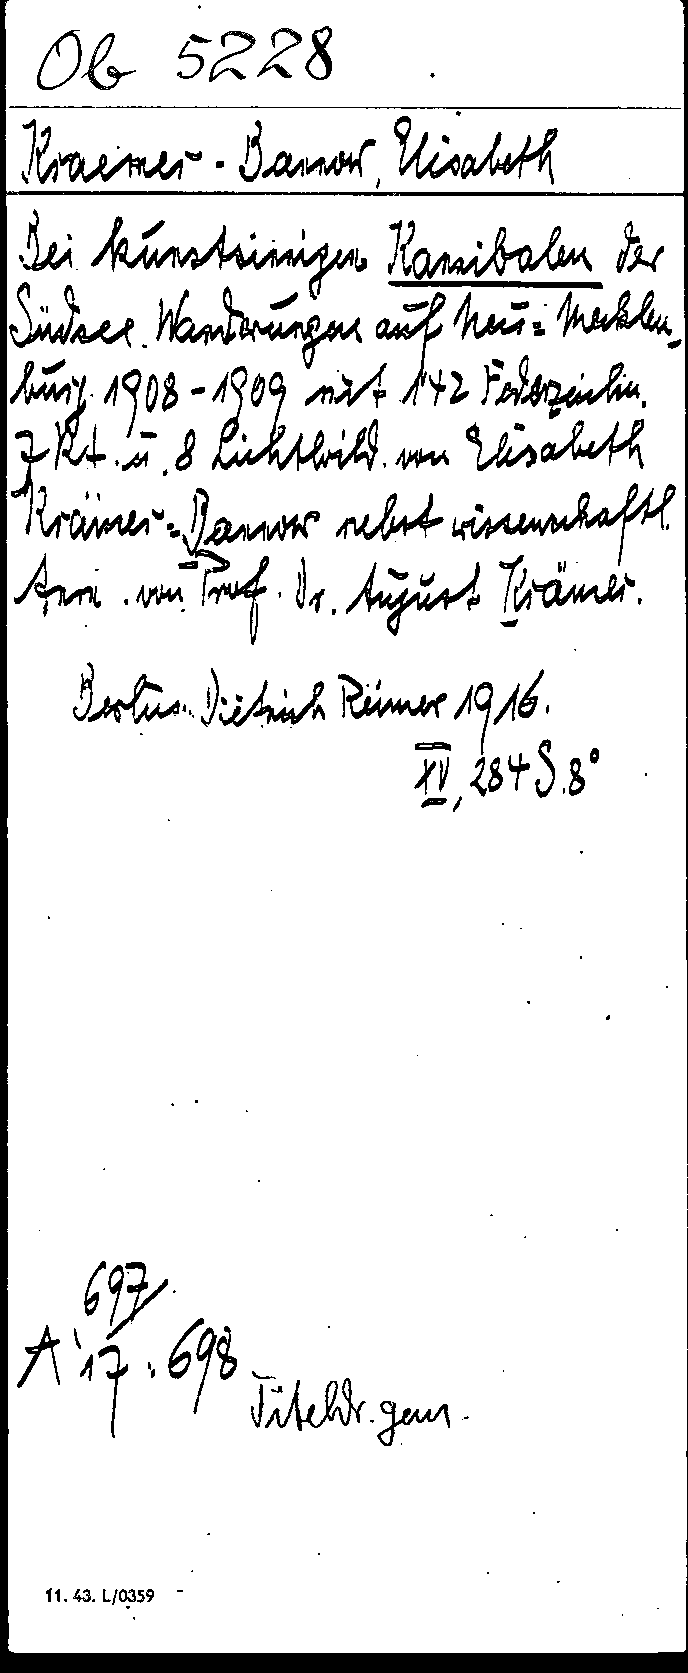 Ob 5228
Kraemer-Bannow, Elisabeth
Bei kunstsinnigen Kannibalen der
Südsee. Wanderungen auf Neu=Mecklen-
burg 1908-1909 mit 142 Federzeichn.
7 Kt. u. 8 Lichtbild. von Elisabeth
Krämer=Bannow nebst wissenschaftl.
Anm. von Prof. Dr. August Krämer.
Berlin: Dietrich Reimer 1916.
XV, 284 S. 8°
697/
A' 17.698
Titeldr. gen.
11. 43. L/0359